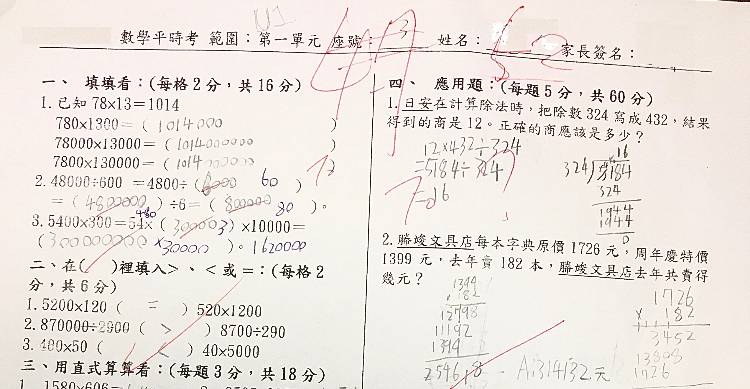 數學平時考 範圍：第一單元 座號： 3 姓名： 家長簽名：
一、 填填看：(每格2分，共16分)
1.已知 78×13=1014
780×1300=( 1014000 )
78000×13000=( 1014000000 )
7800×130000=( 1014000000 )
2.48000÷600 =4800÷( 60 )
=( 4800000 )÷6=( 800000 80 )。
3.5400×300=54×( 30000 )×10000=
( 30000 )。1620000
二、在( )裡填入>、<或=：(每格2
分，共6分)
1.5200×120 ( = ) 520×1200
2.870000÷2900 ( > ) 8700÷290
3.400×50 ( ) 40×5000
三、用直式算算看：(每題3分，共18分)
1. 1580×606=
四、 應用題：(每題5分，共60分)
1.日安在計算除法時，把除數324寫成432，結果
得到的商是12。正確的商應該是多少？
12×432÷324
=5184÷324
=16
16
324 5184
324
1944
1944
0
2.勝竣文具店每本字典原價1726元，周年慶特價
1399元，去年賣182本，勝竣文具店去年共賣得
幾元？
1399
182
2798
11192
1399
254618
A:314132元
1726
× 182
3452
13808
1726